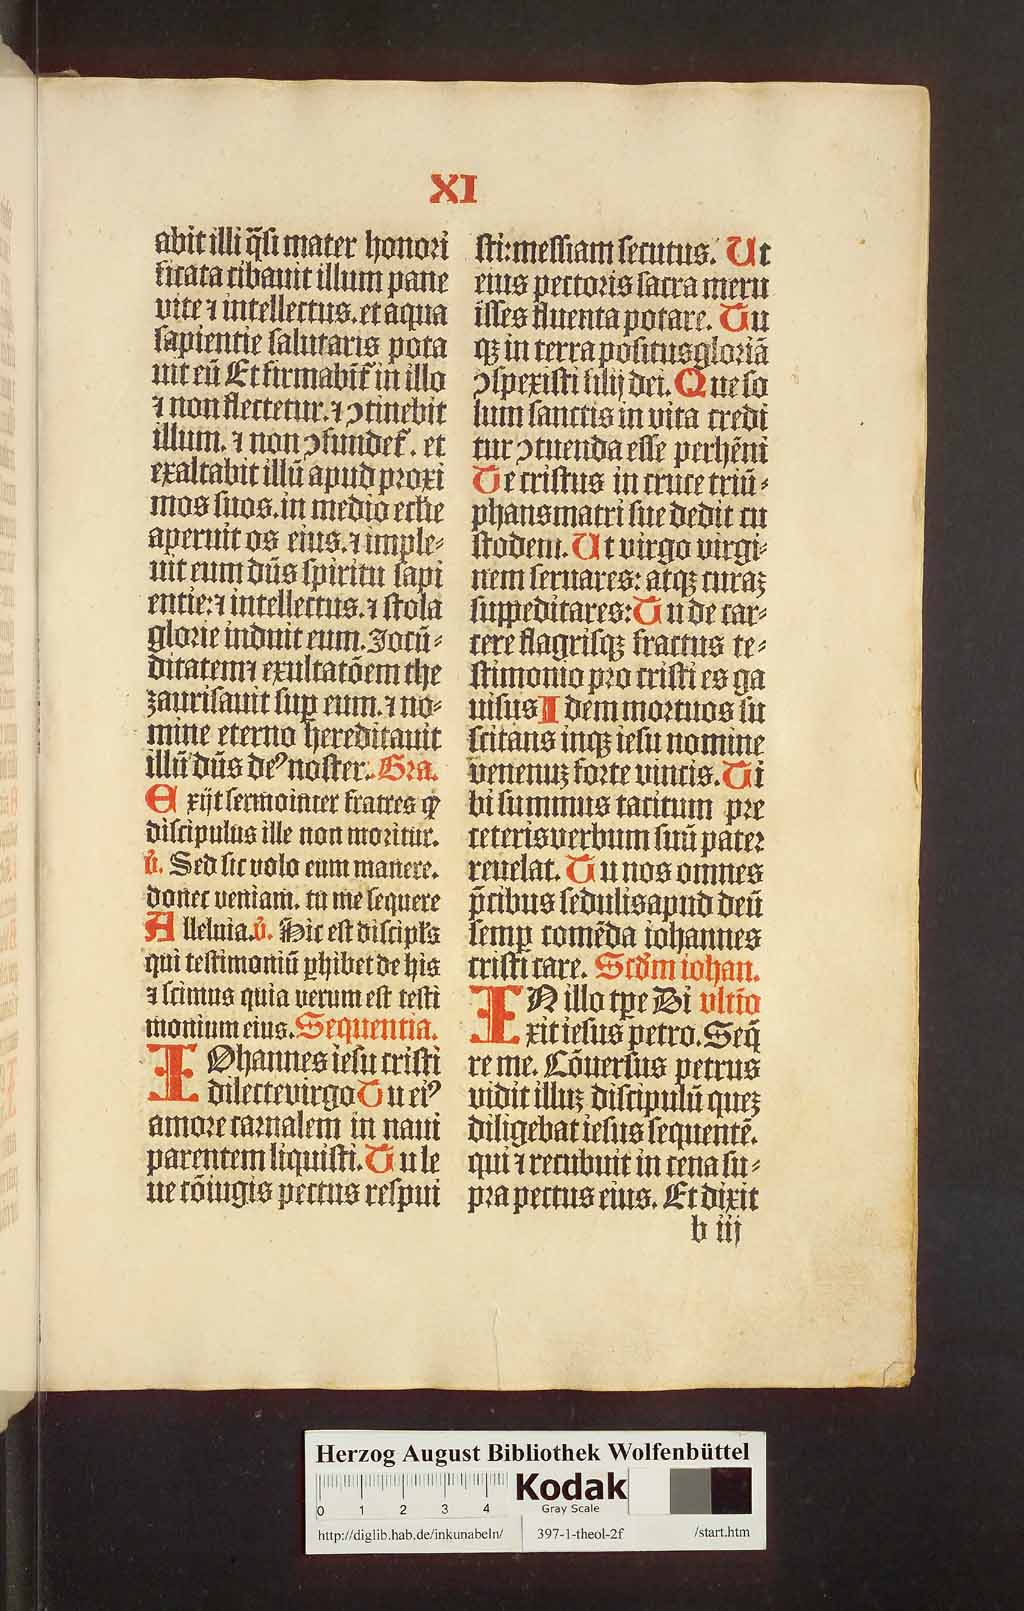 XI
abit illi q̃si mater honori
ficata cibauit illum pane
vite ⁊ intellectus. et aqua
sapientie salutaris pota
uit eũ Et firmabit᷑ in illo
⁊ non flectetur. ⁊ ꝯtinebit
illum. ⁊ non ꝯfundet᷑. et
exaltabit illũ apud proxi
mos suos. in medio eccl̃ie
aperuit os eius. ⁊ imple⸗
uit eum dñs spiritu sapi
entie: ⁊ intellectus. ⁊ stola
glorie induit eum. Jocũ⸗
ditatem ⁊ exultatõem the
zaurisauit sup̱ eum. ⁊ no⸗
mine eterno hereditauit
illũ dñs deꝰ noster. Gra.
Exijt sermo inter fratres ꝙ
discipulus ille non moritur.
v̾. Sed sic volo eum manere.
donec veniam. tu me sequere
Alleluia. v̾. Hic est discipl̃s
qui testimoniũ ꝑhibet de his
⁊ scimus quia verum est testi
monium eius. Sequentia.
IOhannes iesu cristi
dilecte virgo Tu eiꝰ
amore carnalem in naui
parentem liquisti. Tu le
ue cõiugis pectus respui
sti: messiam secutus. Ut
eius pectoris sacra meru
isses fluenta potare. Tu
qꝫ in terra positus gloriã
ꝯspexisti filij dei. Que so
lum sanctis in vita credi
tur ꝯtuenda esse perhẽni
Te cristus in cruce triũ⸗
phans matri sue dedit cu
stodem. Ut virgo virgi⸗
nem seruares: atqꝫ curaꝫ
suppeditares: Tu de car⸗
cere flagrisqꝫ fractus te⸗
stimonio pro cristi es ga
uisus Idem mortuos su
scitans inqꝫ iesu nomine
venenuꝫ forte vincis. Ti
bi summus tacitum pre
ceteris verbum suũ pater
reuelat. Tu nos omnes
p̃cibus sedulis apud deũ
semp̱ comẽda iohannes
cristi care. Scd̃m iohan.
IN illo tꝑe Di vltio
xit iesus petro. Seq̃
re me. Cõuersus petrus
vidit illuꝫ discipulũ queꝫ
diligebat iesus sequentẽ.
qui ⁊ recubuit in cena su⸗
pra pectus eius. Et dixit
b iij
Herzog August Bibliothek Wolfenbüttel
0 1 2 3 4
Kodak
Gray Scale
http://diglib.hab.de/inkunabeln/ 397-1-theol-2f /start.htm